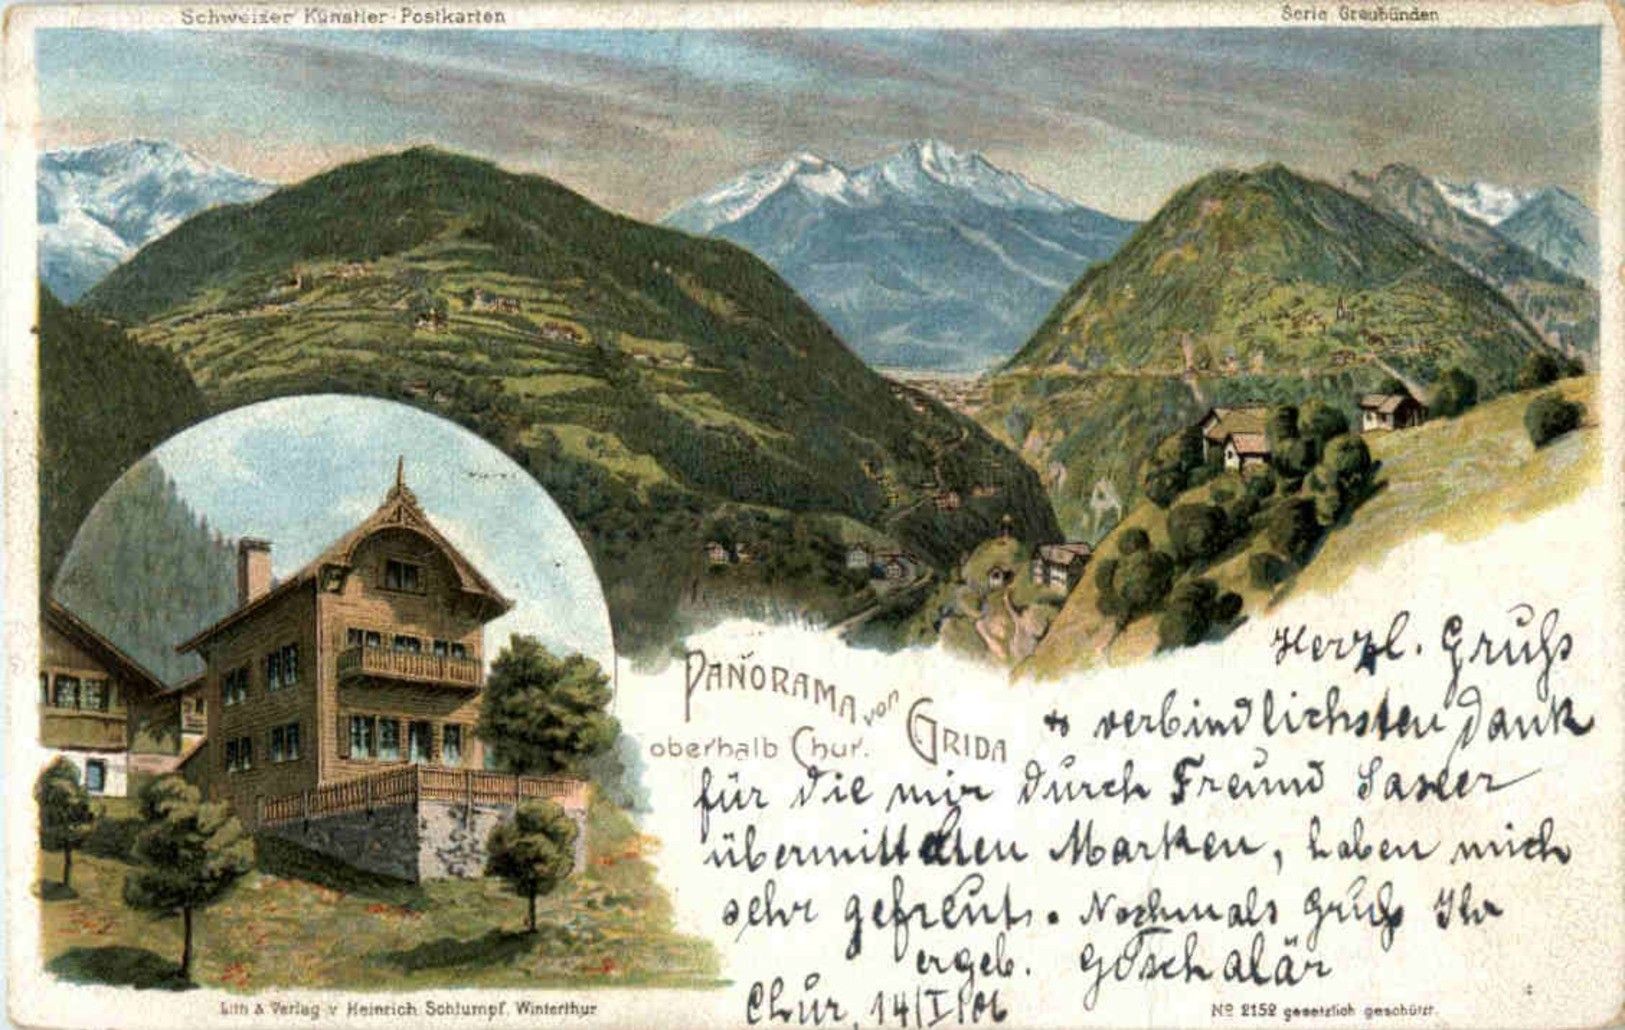 Schweizer Künstler-Postkarten
Serie Graubünden
PANORAMA von GRIDA
oberhalb Chur.
Herzl. Gruß
& verbindlichsten Dank
für die mir durch Freund Saxer
übermittelten Marken, haben mich
sehr gefreut. Nochmals Gruß Ihr
ergeb.
Chur, 14/I/06
Lith & Verlag v Heinrich Schlumpf, Winterthur
No 2152 gesetzlich geschützt.